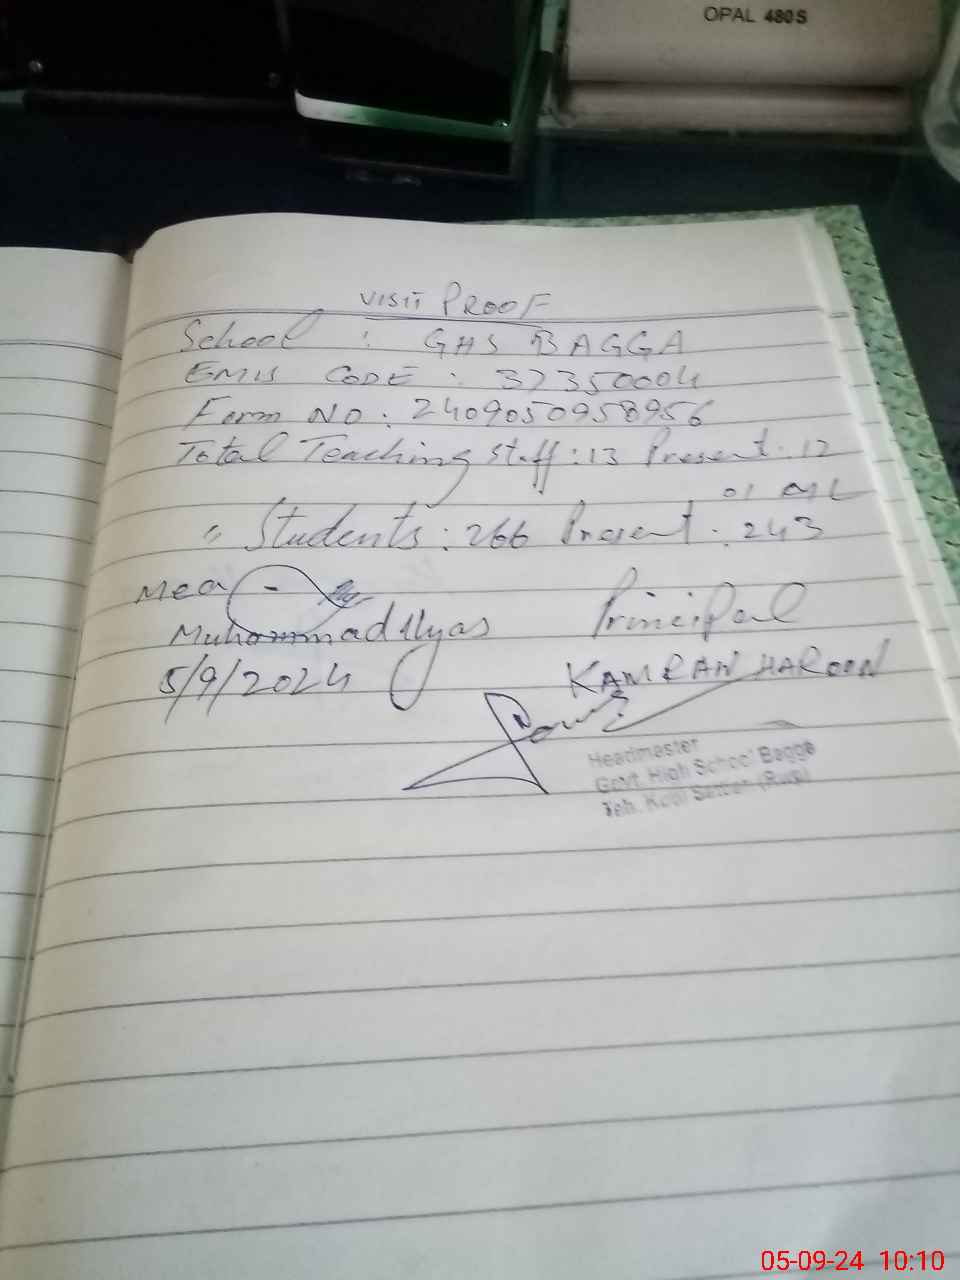 OPAL 480S
VISIT PROOF
School : GHS BAGGA
EMIS CODE : 37350004
Form NO : 2409050958956
Total Teaching Staff : 13 Present : 12
01 ML
" Students : 266 Present : 243
Mea
Muhammad Ilyas
Principal
5/9/2024
KAMRAN HAROON
Headmaster
Govt. High School Bagga
Teh. Kallar Syedan (Rwp)
05-09-24 10:10